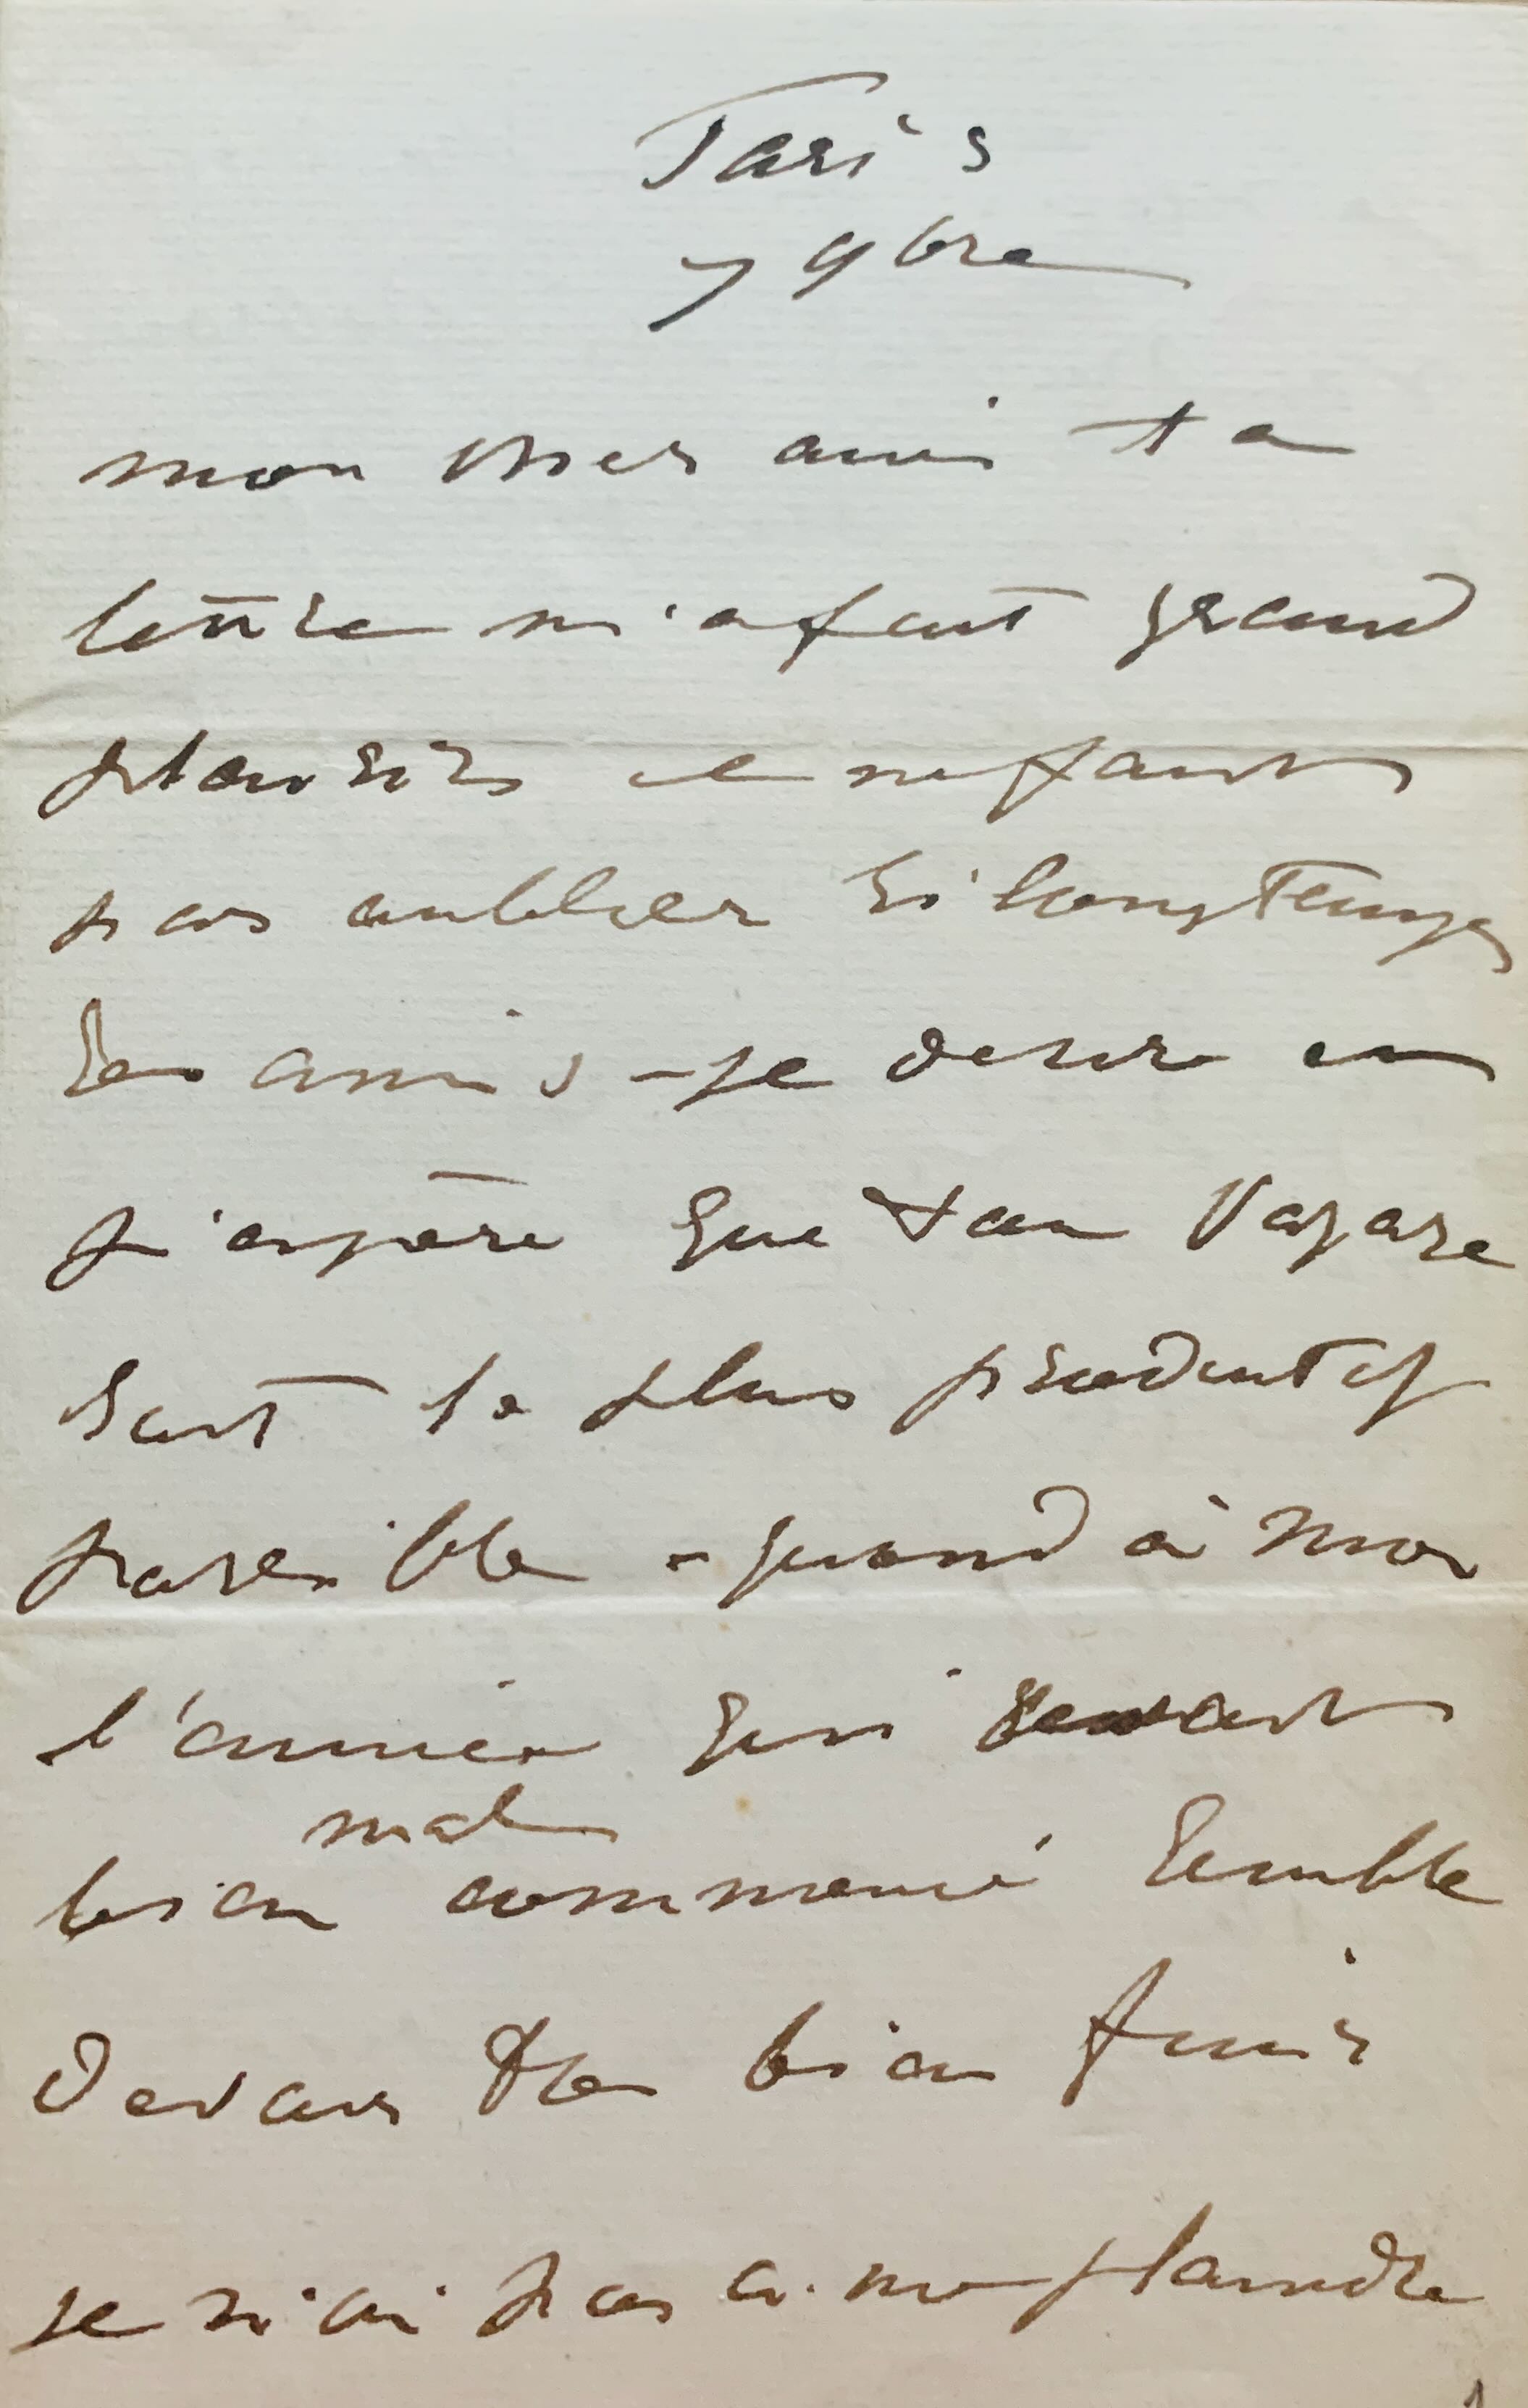 Paris
7 9bre
mon cher ami ta
lettre m'a fait grand
plaisir il ne faut
pas oublier si longtemps
les amis - je désire et
j'espère que ton voyage
soit le plus productif
possible - quand à moi
l'année qui
mal
bien commencé semble
devoir bien finir
je n'ai pas à me plaindre